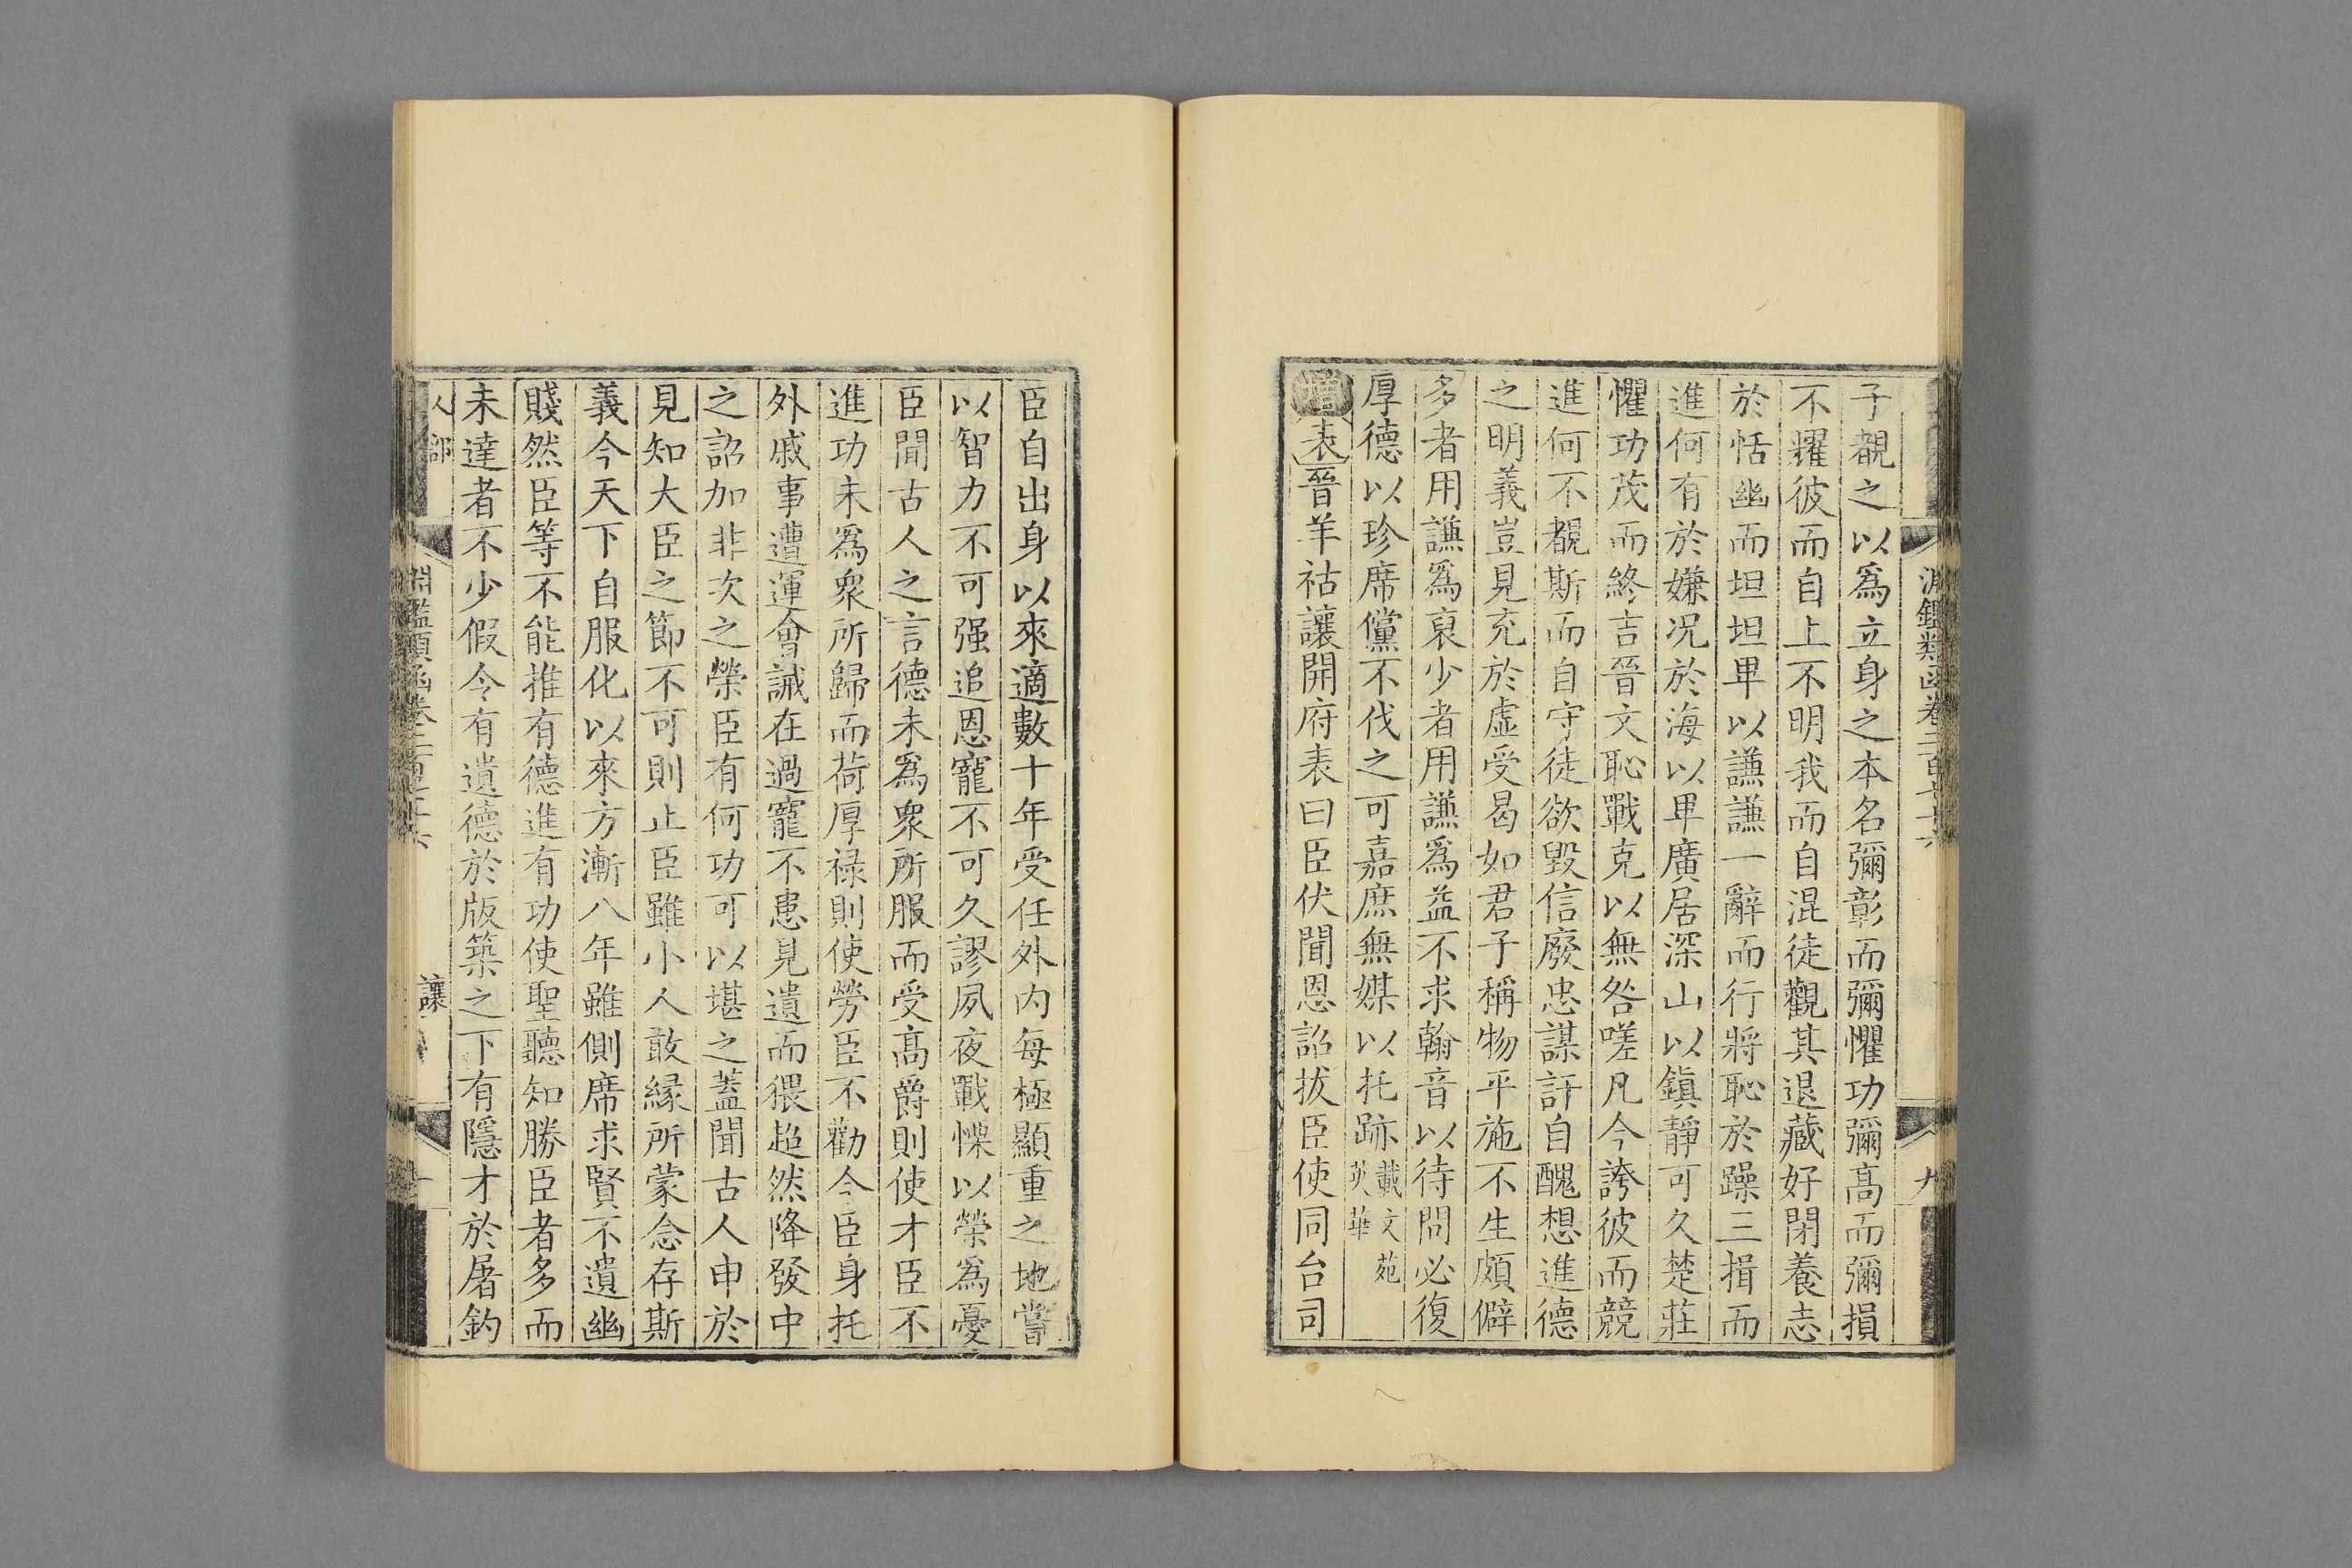 子覩之以爲立身之本名彌彰而彌懼功彌高而彌損
不耀彼而自上不明我而自混徒觀其退藏好閉養志
於恬幽而坦坦卑以謙謙一辭而行將恥於躁三揖而
進何有於嫌况於海以卑廣居深山以鎮靜可久楚莊
懼功茂而終吉晉文恥戰克以無咎嗟凡今誇彼而競
進何不覩斯而自守徒欲毀信廢忠謀訐自醜想進德
之明義豈見充於虛受曷如君子稱物平施不生頗僻
多者用謙爲裒少者用謙爲益不求翰音以待問必復
厚德以珍席儻不伐之可嘉庶無媒以托跡載文苑英華
增表晉羊祜讓開府表曰臣伏聞恩詔拔臣使同台司
九
臣自出身以來適數十年受任外内每極顯重之地嘗
以智力不可强追恩寵不可久謬夙夜戰慄以榮爲憂
臣聞古人之言德未爲衆所服而受高爵則使才臣不
進功未爲衆所歸而荷厚祿則使勞臣不勸今臣身托
外戚事遭運會誠在過寵不患見遺而猥超然降發中
之詔加非次之榮臣有何功可以堪之蓋聞古人申於
見知大臣之節不可則止臣雖小人敢緣所蒙念存斯
義今天下自服化以來方漸八年雖側席求賢不遺幽
賤然臣等不能推有德進有功使聖聽知勝臣者多而
未達者不少假令有遺德於版築之下有隱才於屠釣
人部
讓